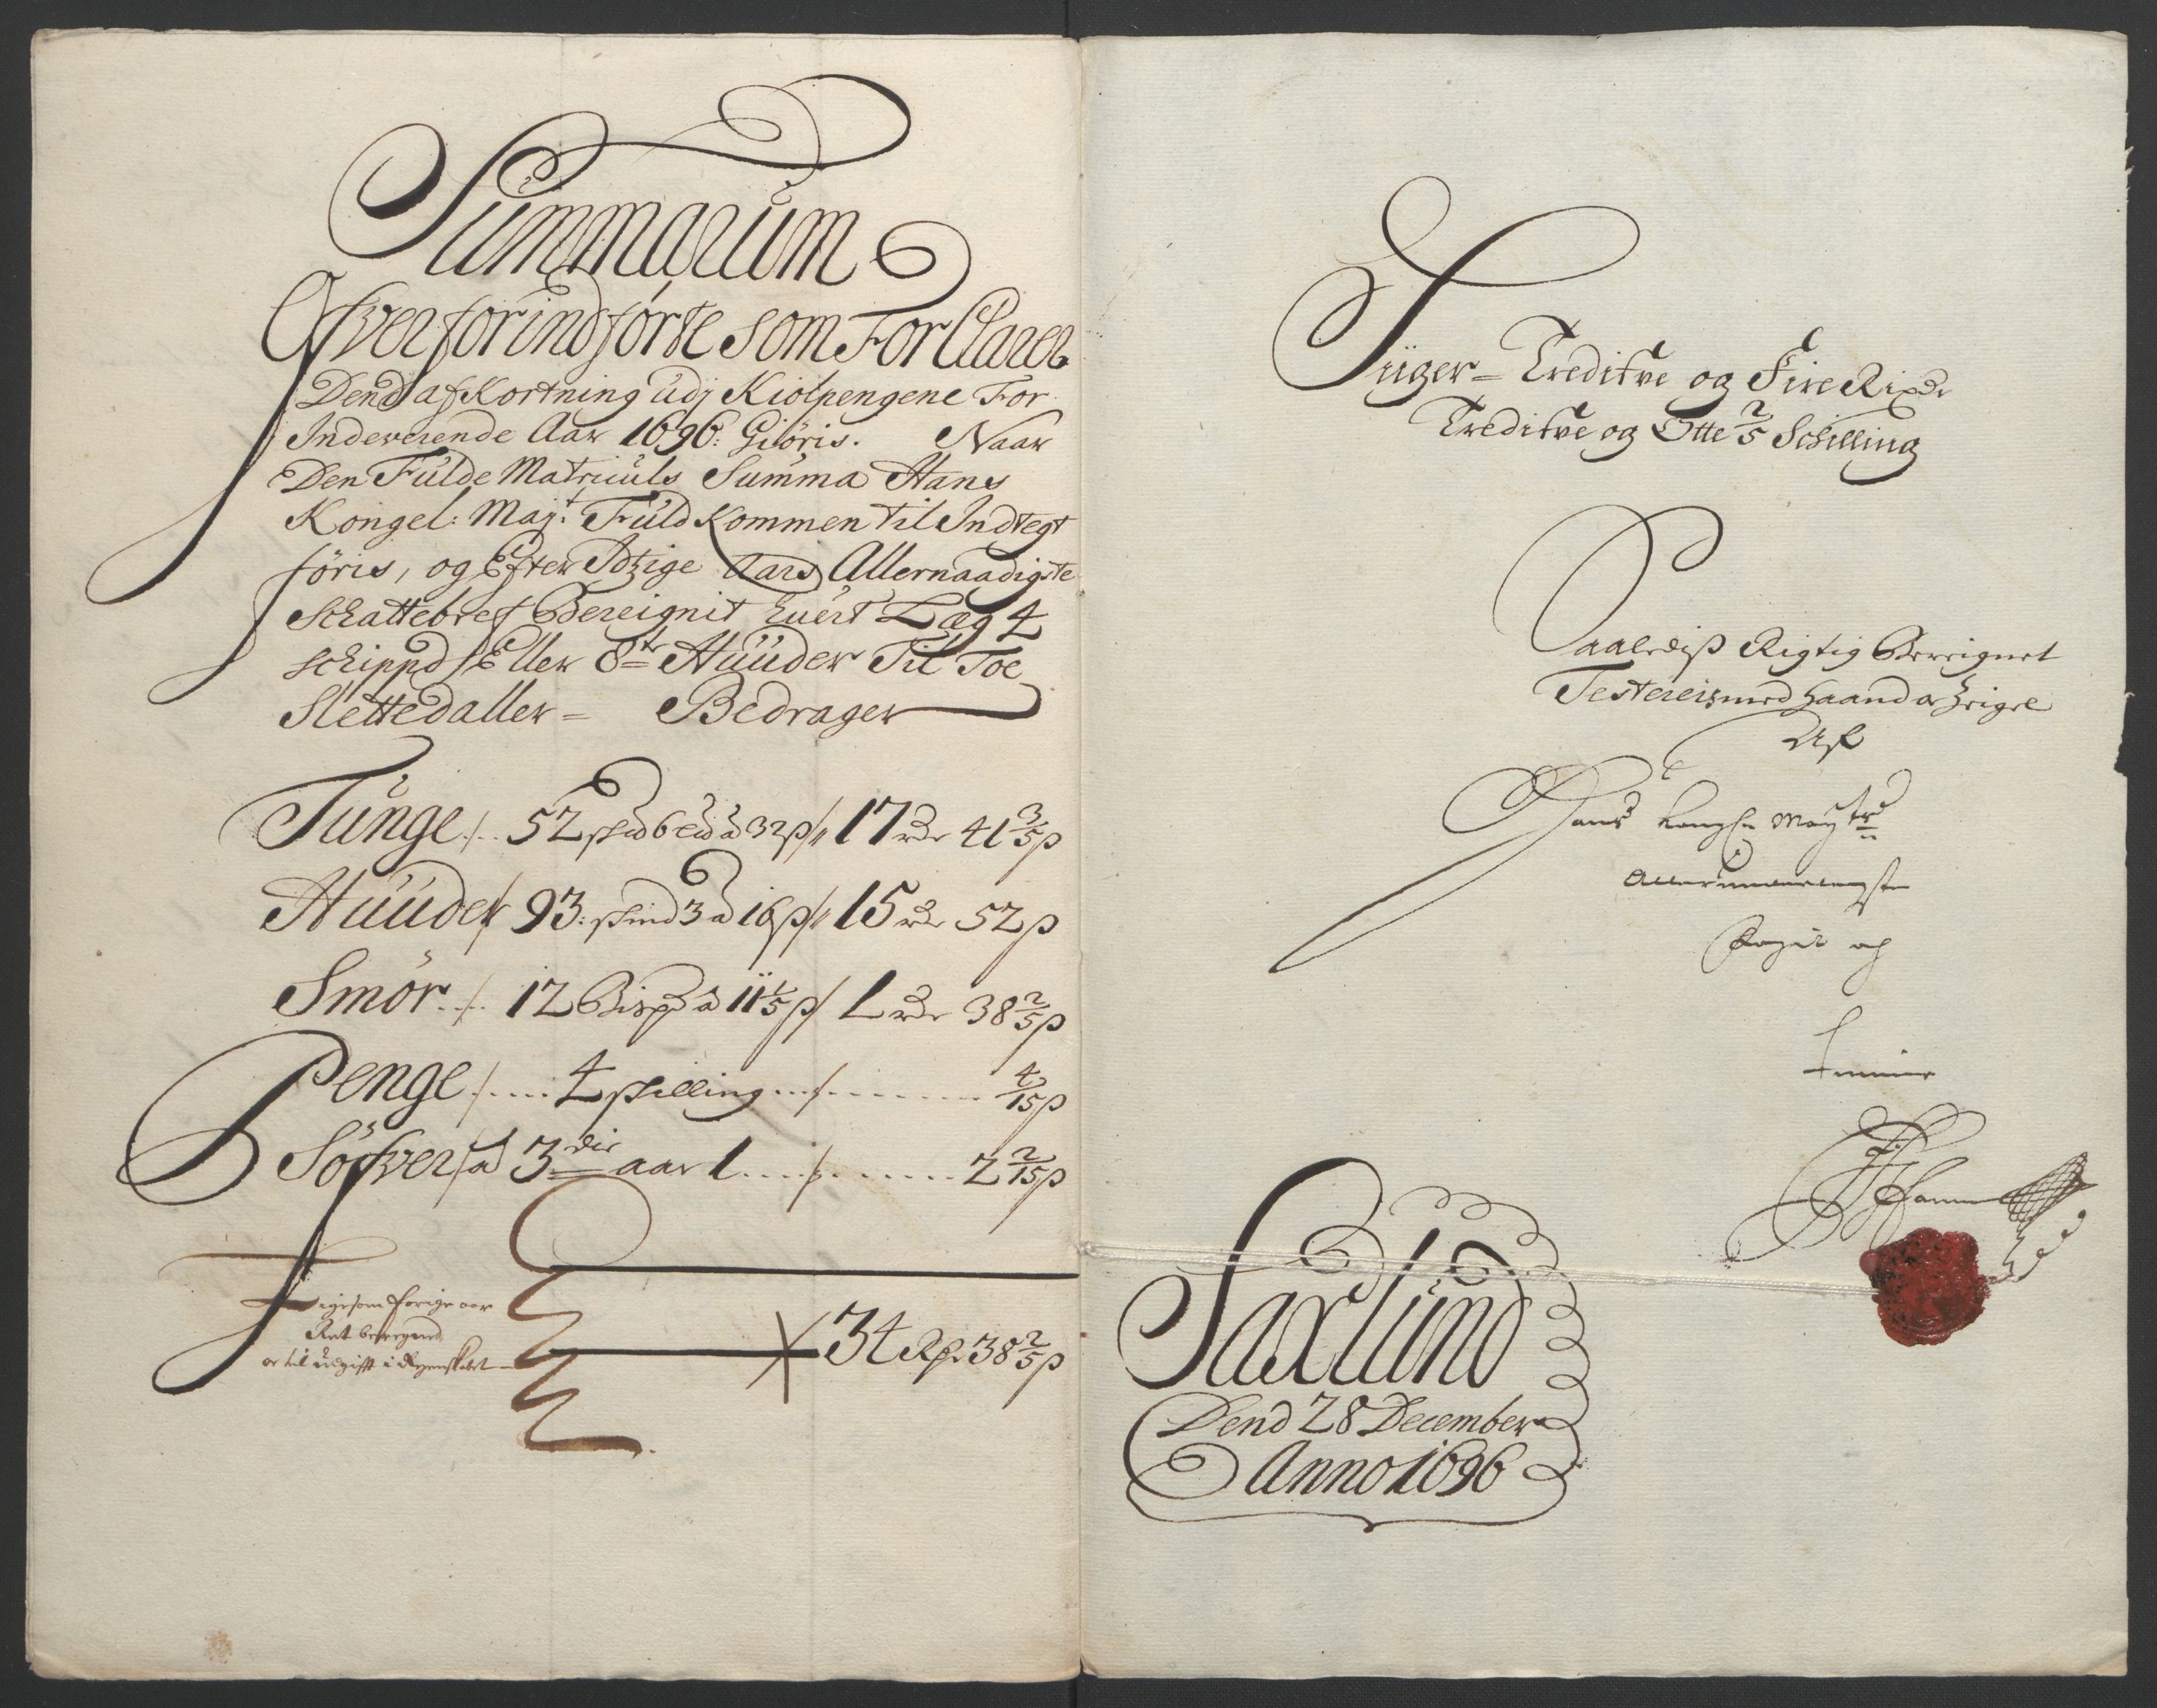 Summarum
Ofverforindførte som For Clarer
Dend af Kortning udj Kiolpengene For
Indeverende Aar 1696: Giöris. Naar
Den Fulde Matriculs Summa Hans
Kongel: May:t Fuldkommen til Indtegt
föris, og Efter Idzige Aars Allernaadigste
Schattebref Bereignit huert Læg 4
schippd Eller 8te Huuder Til Toe
Slettedaller = Bedrager
Tunge /. 52 spd 6 lid à 32 β // 17 rdr 41 3/5 β
Huuder / 93: skind 3 à 16 β // 15 rdr 52 β
Smör ./. 12 Bispd à 11 1/5 β / 1 rdr 38 2/5 β
Penge /.... 4 skilling .../....... 4/15 β
Söfver / à 3die aar 1 .../...... 2 2/15 β
ligesom forige aar
Ret beregned
er til udgifft i Regenskabet
34 Rdr 38 2/5 β
Siger = Treditve og Fire Rixdr
Treditve og Otte 2/5 Schilling
Saalediß Rigtig Bereignet
Testereris med haand
Af
Hans Kongl: Maytz
Allerunderdanigste
Foget og
tienner
Saxlund
Dend 28 December
Anno 1696